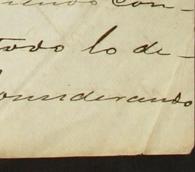 con-
todo lo de-
considerando